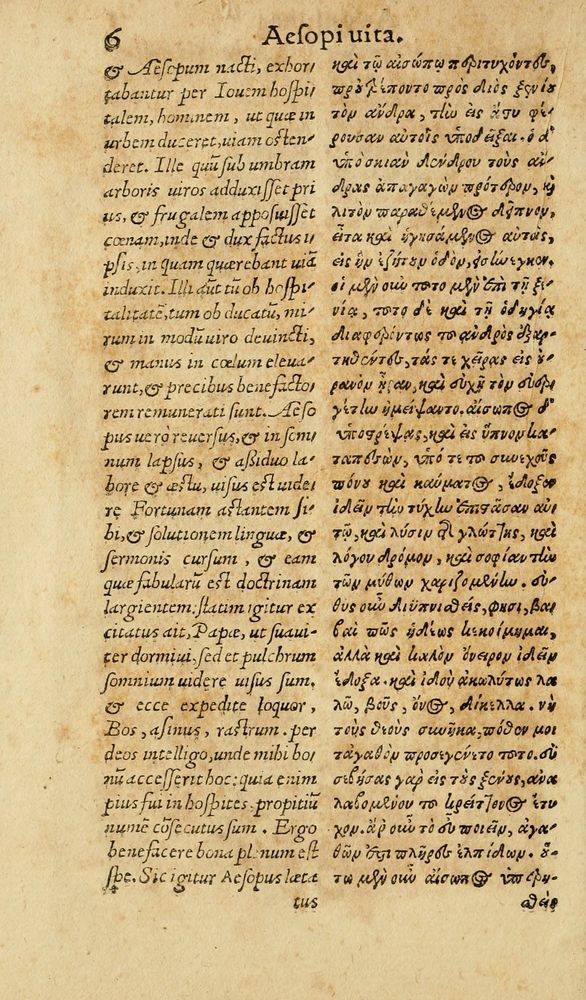 6 Aesopi uita.
& Aesopum nacti, exhor
tabantur per Iouem hospi
talem, hominem, ut quæ in
urbem duceret, uiam osten-
deret. Ille quū sub umbram
arboris uiros adduxisset pri
us, & frugalem apposuisset
cœnam, inde & dux factus i
psis, in quam quærebant uiā
induxit. Illi aūt tū ob hospi-
talitatē, tum ob ducatū, mi-
rum in modū uiro deuincti,
& manus in cœlum eleua-
runt, & precibus benefacto-
rem remunerati sunt. Aeso
pus uerò reuersus, & in som
num lapsus, & assiduo la-
bore & æstu, uisus est uide-
re Fortunam astantem si-
bi, & solutionem linguæ, &
sermonis cursum, & eam
quæ fabularū est doctrinam
largientem: statim igitur ex
citatus ait, Papæ, ut suaui-
ter dormiui, sed et pulchrum
somnium uidere uisus sum.
& ecce expedite loquor,
Bos, asinus, rastrum. per
deos intelligo, unde mihi bo
nū accesserit hoc: quia enim
pius fui in hospites. propitiū
numē cōsecutus sum. Ergo
benefacere bona plenum est
spe. Sic igitur Aesopus læta
tus
καὶ τῷ αἰσώπῳ περιτυχόντες,
προὐτρέποντο πρὸς διὸς ξενίου
τὸν ἄνδρα, τὴν εἰς ἄστυ φέ-
ρουσαν αὐτοῖς ὑποδεῖξαι. ὁ δ'
ὑπὸ σκιὰν δένδρου τοὺς ἄν-
δρας ἀπαγαγὼν πρότερον, ϗ
λιτὸν παραθέμενος δεῖπνον,
εἶτα καὶ ἡγησάμενος αὐτοῖς,
εἰς ἣν ἐζήτουν ὁδὸν, εἰσήνεγκεν.
οἱ μὲν οὖν τοῦτο μὲν ἐπὶ τῇ ξε-
νίᾳ, τοῦτο δὲ καὶ τῇ ὁδηγίᾳ
διαφερόντως τοῦ ἀνδρὸς ἐξαρ-
τηθέντες, τάς τε χεῖρας εἰς οὐ-
ρανὸν ἦραν, καὶ εὐχῇ τὸν εὐερ-
γέτην ἠμείψαντο. αἴσωπος δ'
ὑποστρέψας, καὶ εἰς ὕπνον κα-
ταπεσὼν, ὑπό τε τοῦ συνεχοῦς
πόνου καὶ καύματος, ἔδοξεν
ἰδεῖν τὴν τύχην ἐπιστᾶσαν αὐ-
τῷ, καὶ λύσιν τῆς γλώττης, καὶ
λόγου δρόμον, καὶ σοφίαν τὴν
τῶν μύθων χαριζομένην. εὐ-
θὺς οὖν διυπνισθείς, φησι, βα-
βαὶ πῶς ἡδέως κεκοίμημαι,
ἀλλὰ καὶ καλὸν ὄνειρον ἰδεῖν
ἔδοξα. καὶ ἰδοὺ ἀκωλύτως λα-
λῶ, βοῦς, ὄνος, δίκελλα. νὴ
τοὺς θεοὺς συνῆκα, πόθεν μοι
τἀγαθὸν προσεγένετο τοῦτο. εὐ
σεβήσας γὰρ εἰς τοὺς ξένους, ἀνα
λαβομένου τοῦ κρείττονος ἔτυ
χον. ἆρ οὖν τὸ εὖ ποιεῖν, ἀγα-
θῶν ἐστι πλῆρες ἐλπίδων. οὕ-
τω μὲν οὖν αἴσωπος ὑπερη-
σθεὶς